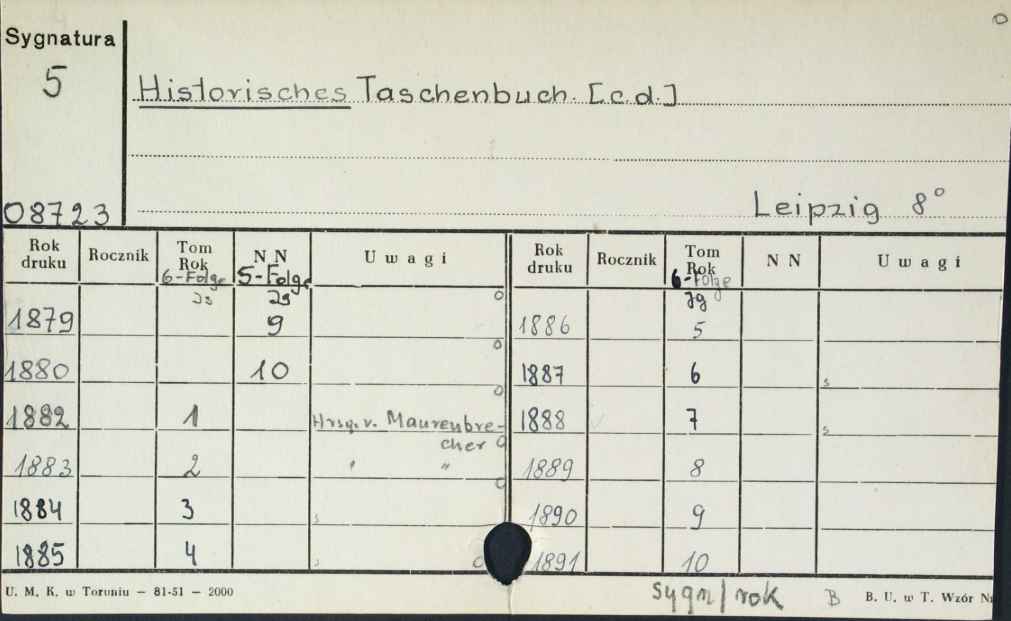 Sygnatura
5
Historisches Taschenbuch. [c.d.]
08723
Leipzig 8°
Rok druku Rocznik Tom Rok NN Uwagi Rok druku Rocznik Tom Rok NN Uwagi
6-Folge 5-Folge 6-Folge
Jg Jg Jg
1879 9 1886 5
1880 10 1887 6
1882 1 Hrsg. v. Maurenbre- 1888 7
cher
1883 2 " " 1889 8
1884 3 1890 9
1885 4 1891 10
U. M. K. w Toruniu — 81-51 — 2000
sygn/rok B B. U. w T. Wzór